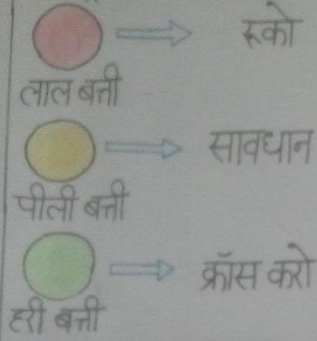 रूको
लाल बत्ती
सावधान
पीली बत्ती
क्रॉस करो
हरी बत्ती